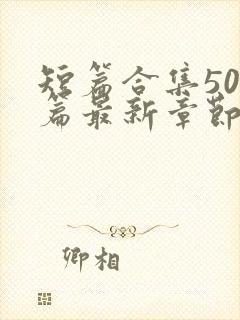 短篇合集50
篇最新章节
卿相